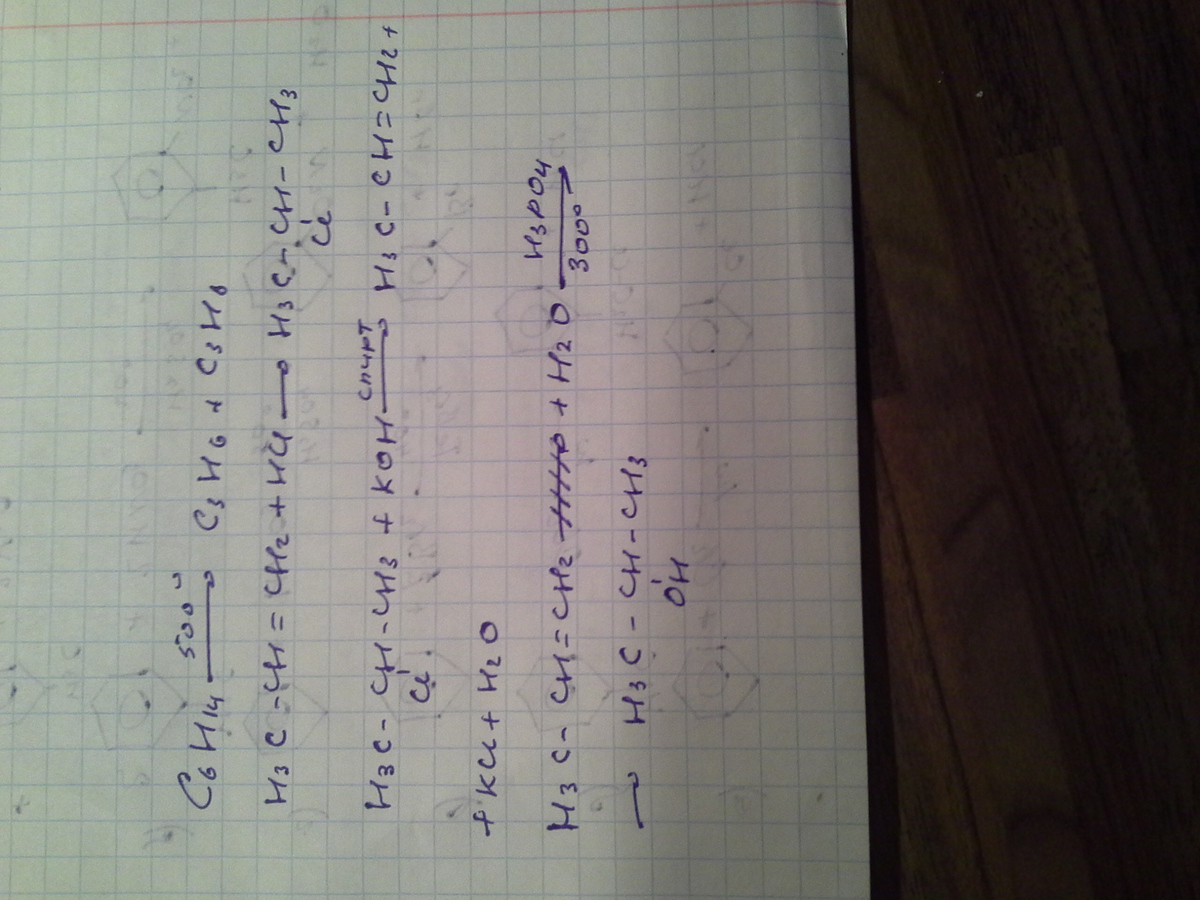 C6H14 500° → C3H6 + C3H8
H3C-CH=CH2 + HCl → H3C-CH-CH3
Cl
H3C-CH-CH3 + KOH спирт → H3C-CH=CH2 +
Cl
+ KCl + H2O
H3C-CH=CH2 + H2O H3PO4 300° →
→ H3C-CH-CH3
OH